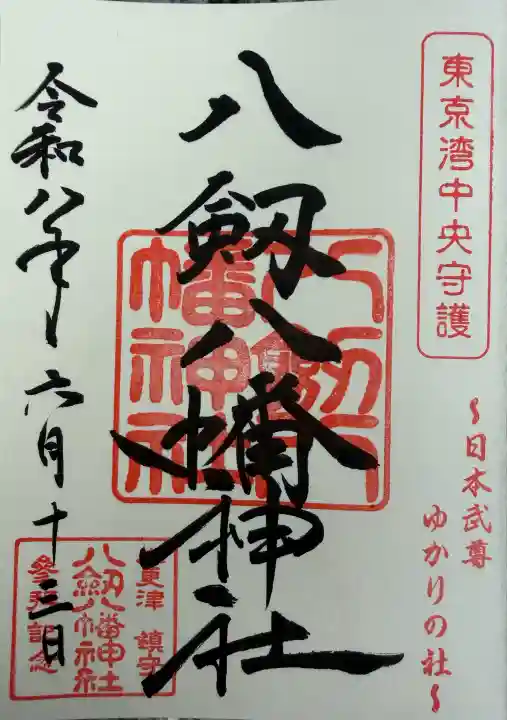 東京湾中央守護
~日本武尊
ゆかりの社~
八剱八幡神社
八剱八幡神社
令和八年六月十三日
更津 鎮守
八劔八幡神社
参拝記念